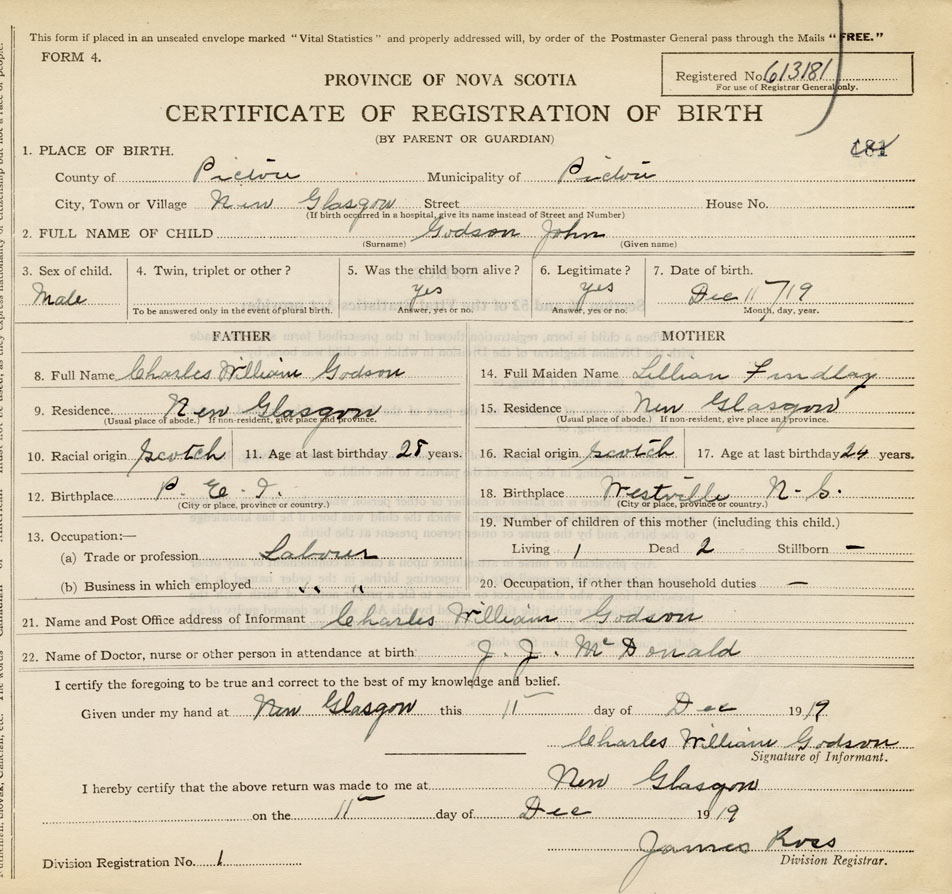 This form if placed in an unsealed envelope marked "Vital Statistics" and properly addressed will, by order of the Postmaster General pass through the Mails "FREE."
FORM 4.
Registered No. 613181
For use of Registrar General only.
PROVINCE OF NOVA SCOTIA
CERTIFICATE OF REGISTRATION OF BIRTH
(BY PARENT OR GUARDIAN)
181
1. PLACE OF BIRTH.
County of Pictou Municipality of Pictou
City, Town or Village New Glasgow Street House No.
(If birth occurred in a hospital, give its name instead of Street and Number)
2. FULL NAME OF CHILD Godson John
(Surname) (Given name)
3. Sex of child. 4. Twin, triplet or other? 5. Was the child born alive? 6. Legitimate? 7. Date of birth.
Male yes yes Dec 11/19
To be answered only in the event of plural birth. Answer, yes or no. Answer, yes or no. Month, day, year.
FATHER MOTHER
8. Full Name Charles William Godson 14. Full Maiden Name Lillian Findlay
9. Residence. New Glasgow 15. Residence New Glasgow
(Usual place of abode.) If non-resident, give place and province. (Usual place of abode.) If non-resident, give place and province.
10. Racial origin Scotch 11. Age at last birthday 28 years. 16. Racial origin Scotch 17. Age at last birthday 24 years.
12. Birthplace P. E. I. 18. Birthplace Westville N. S.
(City or place, province or country.) (City or place, province or country.)
13. Occupation:— 19. Number of children of this mother (including this child.)
(a) Trade or profession Labour Living 1 Dead 2 Stillborn —
(b) Business in which employed " " " 20. Occupation, if other than household duties —
21. Name and Post Office address of Informant Charles William Godson
22. Name of Doctor, nurse or other person in attendance at birth J. J. McDonald
I certify the foregoing to be true and correct to the best of my knowledge and belief.
Given under my hand at New Glasgow this 11 day of Dec 1919
Charles William Godson
Signature of Informant.
I hereby certify that the above return was made to me at New Glasgow
on the 11 day of Dec 1919
James Ross
Division Registrar.
Division Registration No. 1